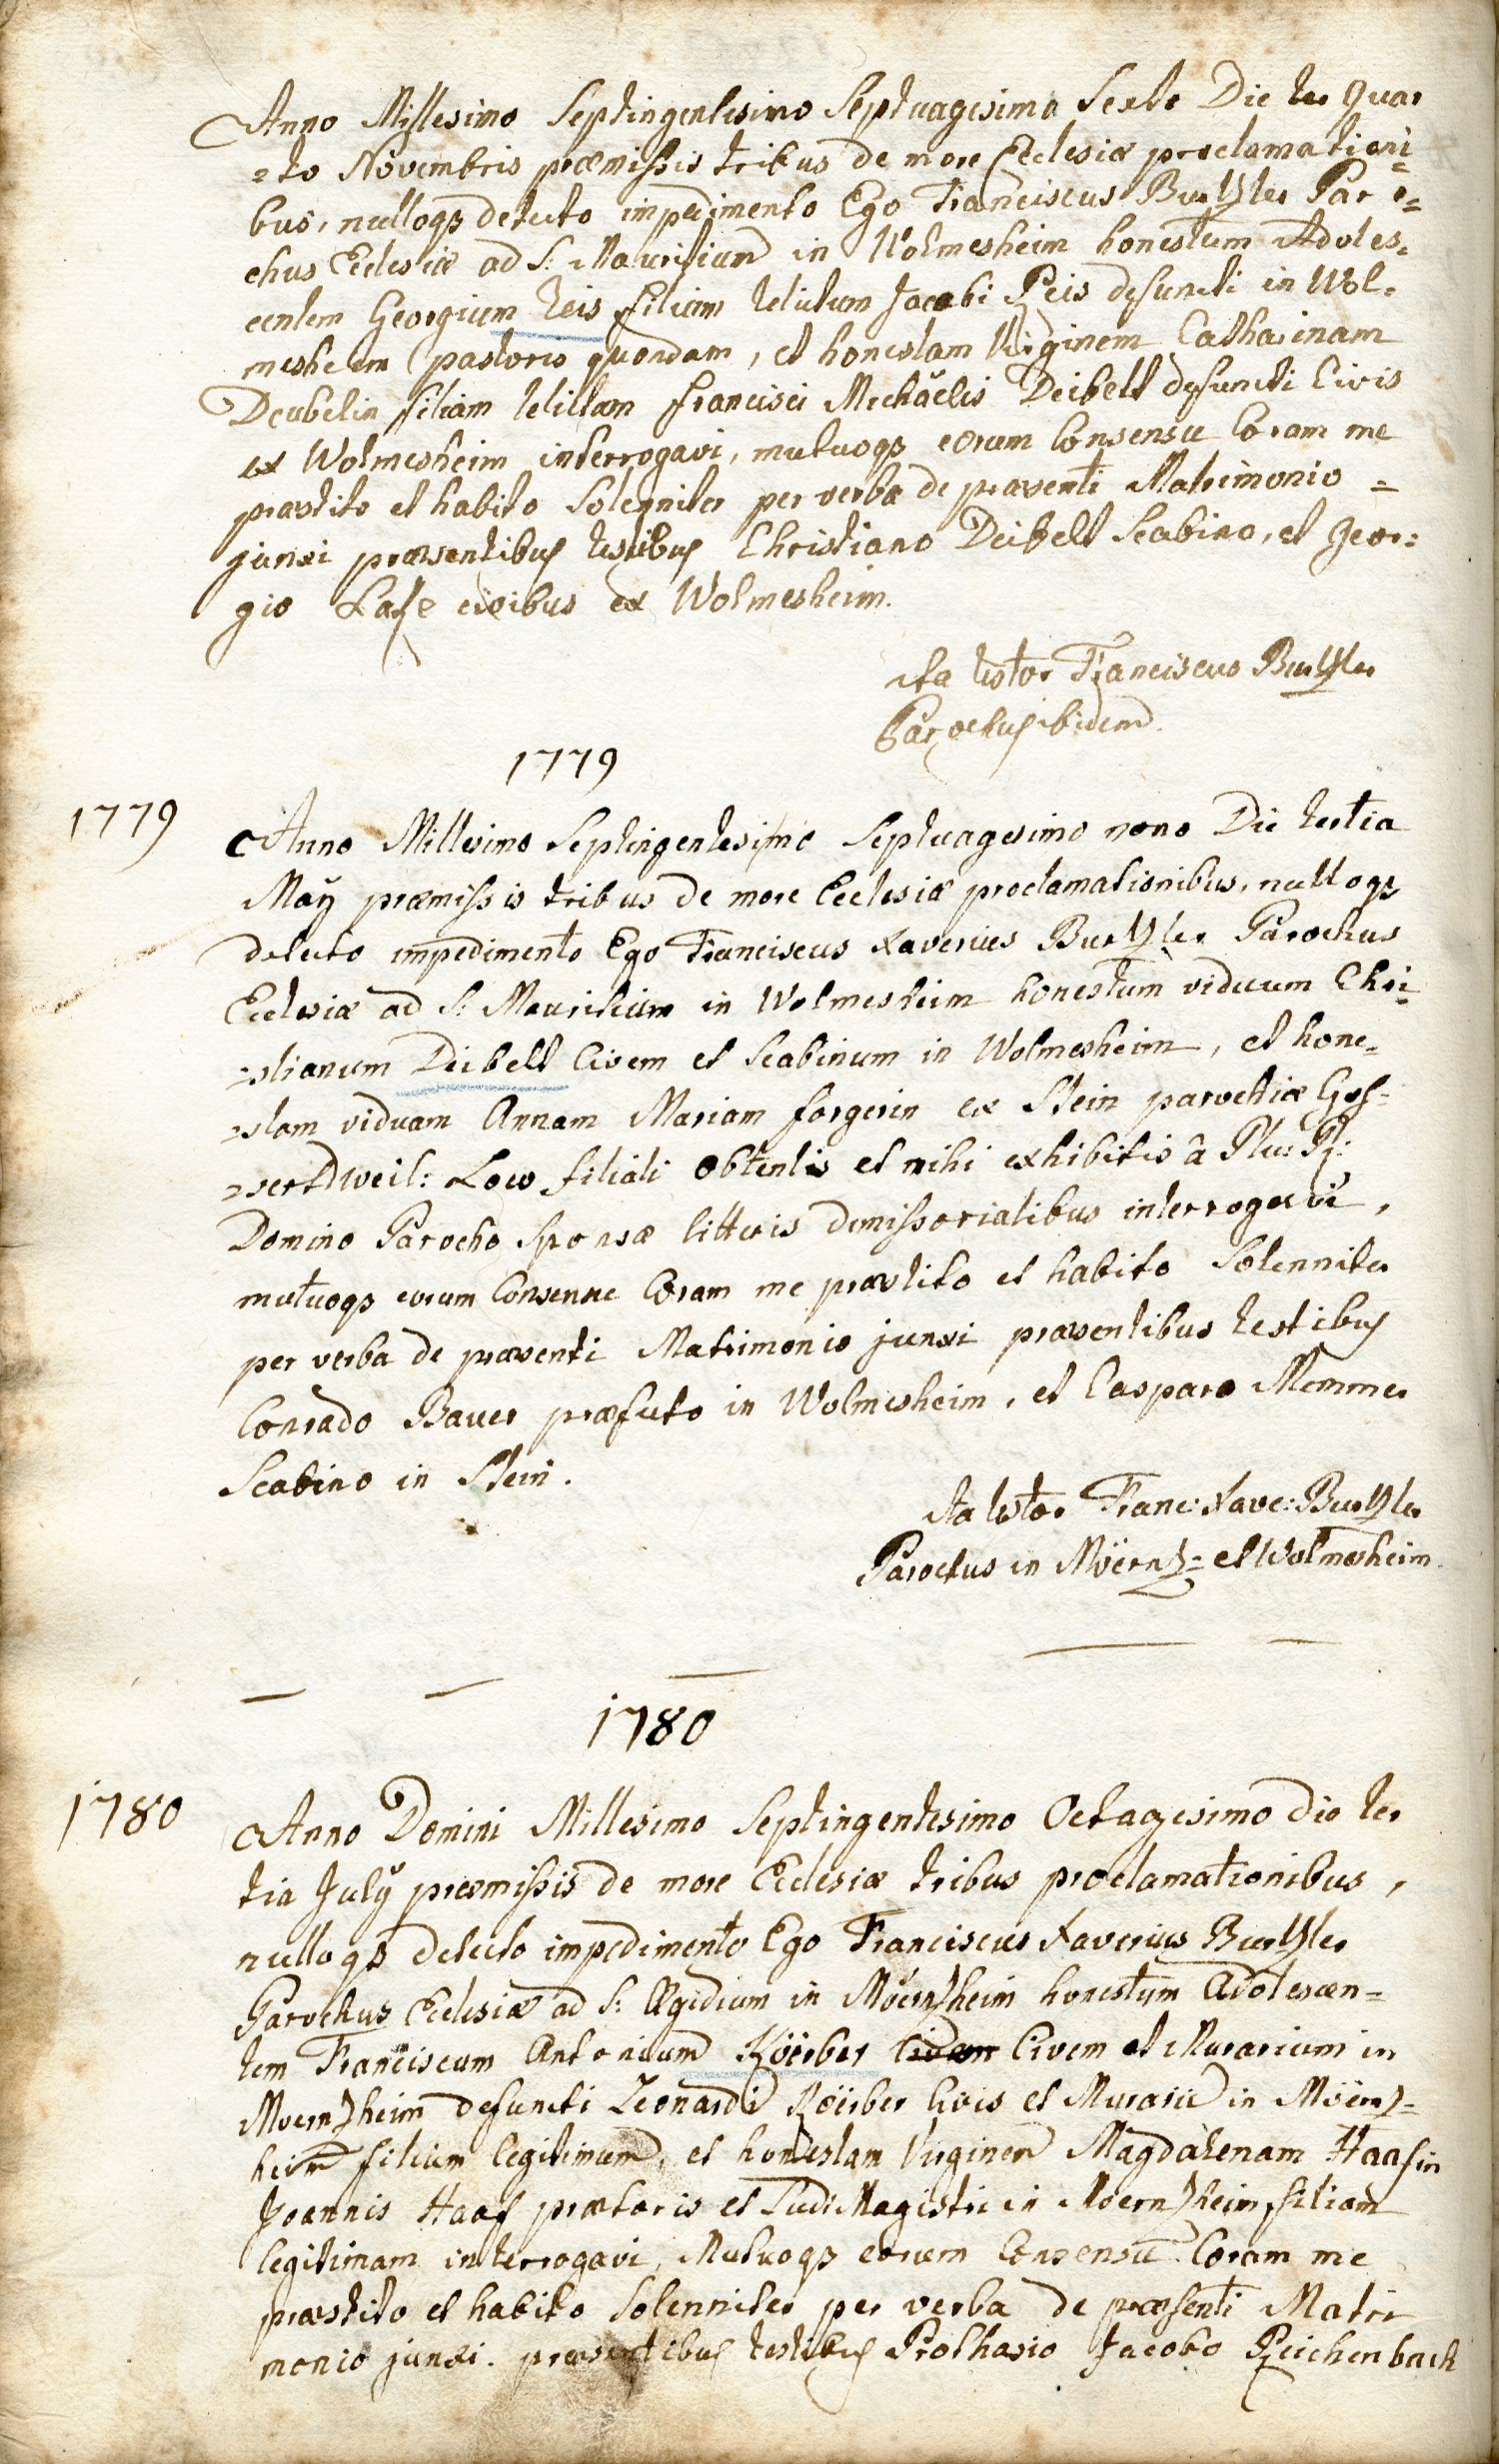 Anno Millesimo Septingentesimo Septuagesimo Sexto Die ter Quar
=to Novembris præmissis tribus de more Ecclesiæ proclamationi=
bus, nulloqs detecto impedimento Ego Franciscus Burtzler Paro=
chus Eclesiæ ad S: Mauritium in Wolmesheim honestum Adoles=
centem Georgium Reis filium relictum Jacobi Reis defuncti in Wol=
mesheim pastoris quondam, et honestam Virginem Catharinam
Deubelin filiam relictam Francisci Michaëlis Deibell defuncti Civis
ex Wolmesheim interrogavi, mutuoqs eorum Consensu Coram me
præstito et habito Solegniter per verba de præsenti Matrimonio =
junxi præsentibus testibus Christiano Deibell Scabino, et Geor=
gio civibus ex Wolmesheim.
Ita testor Franciscus Burtzler
Parochus ibidem.
1779
1779
Anno Millesimo Septingentesimo Septuagesimo nono Die tertia
Maÿ præmissis tribus de more Ecclesiæ proclamationibus, nulloqs
detecto impedimento Ego Franciscus Xaverius Burtzler Parochus
Eclesiæ ad S: Mauritium in Wolmesheim honestum viduum Chri=
=stianum Deibell Civem et Scabinum in Wolmesheim, et hone=
=stam viduam Annam Mariam forgerin ex Stein parochiæ Gos=
=sertsweil: Loco filiali obtentis et mihi exhibitis â Plu: R:
Domino Parocho Sponsæ litteris dimissorialibus interrogavi,
mutuoqs eorum Consensue Coram me præstito et habito Solenniter
per verba de præsenti Matrimonio junxi præsentibus testibus
Conrado Bauer præfecto in Wolmesheim, et Casparo Memmer
Scabino in Stein.
Ita testor Franc: Xave: Burtzler
Parochus in Möerntz= et Wolmesheim.
1780
1780
Anno Domini Millesimo Septingentesimo Octagesimo die ter
tia Julÿ præmissis de more Ecclesiæ tribus proclamationibus,
nulloqs detecto impedimento Ego Franciscus Xaverius Burtzler
Parochus Ecclesiæ ad S: Ægidium in Möerntzheim honestum Adolescen=
tem Franciscum Antonium Köerber Civem et Murarium in
Moerntzheim defuncti Leonardi Köerber Civis et Murarii in Möerntz=
heim filium legitimum, et honestam Virginem Magdalenam Haafin
Joannis Haaf prætoris et Ludi Magistri in Moerntzheim filiam
legitimam interrogavi, Mutuoqs eorum Consensu Coram me
præstito et habito Solenniter per verba de præsenti Matri
monio junxi. præsentibus testibus Prothasio Jacobo Reichenbach